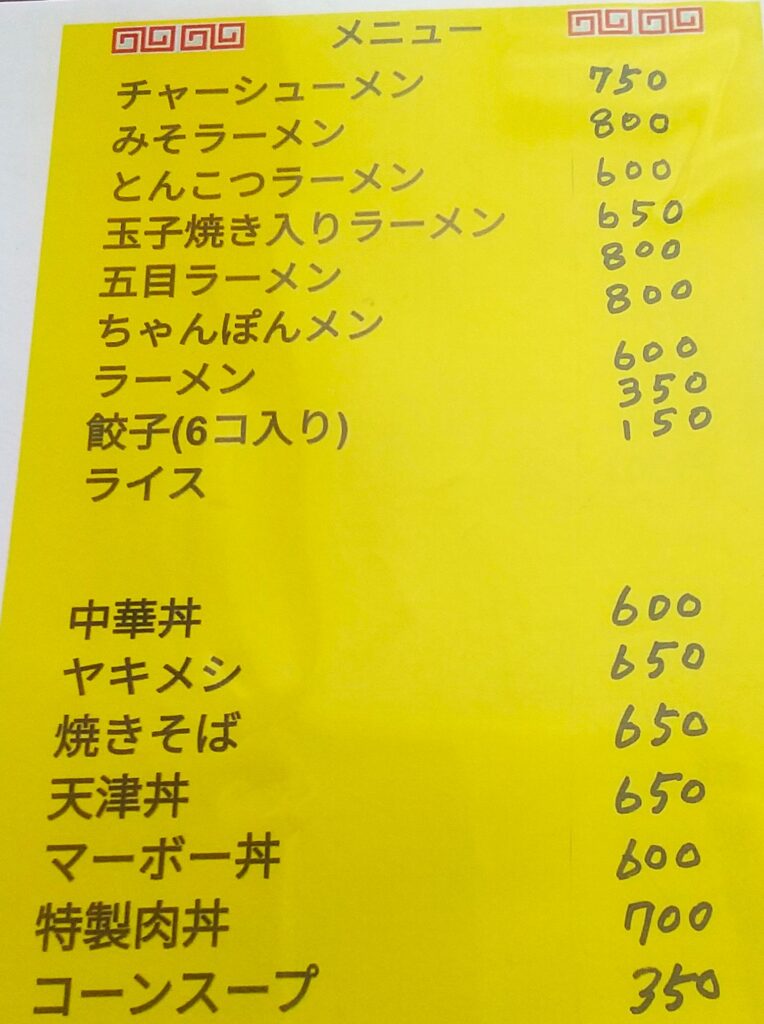 メニュー
チャーシューメン 750
みそラーメン 800
とんこつラーメン 600
玉子焼き入りラーメン 650
五目ラーメン 800
ちゃんぽんメン 800
ラーメン 600
餃子(6コ入り) 350
ライス 150
中華丼 600
ヤキメシ 650
焼きそば 650
天津丼 650
マーボー丼 600
特製肉丼 700
コーンスープ 350